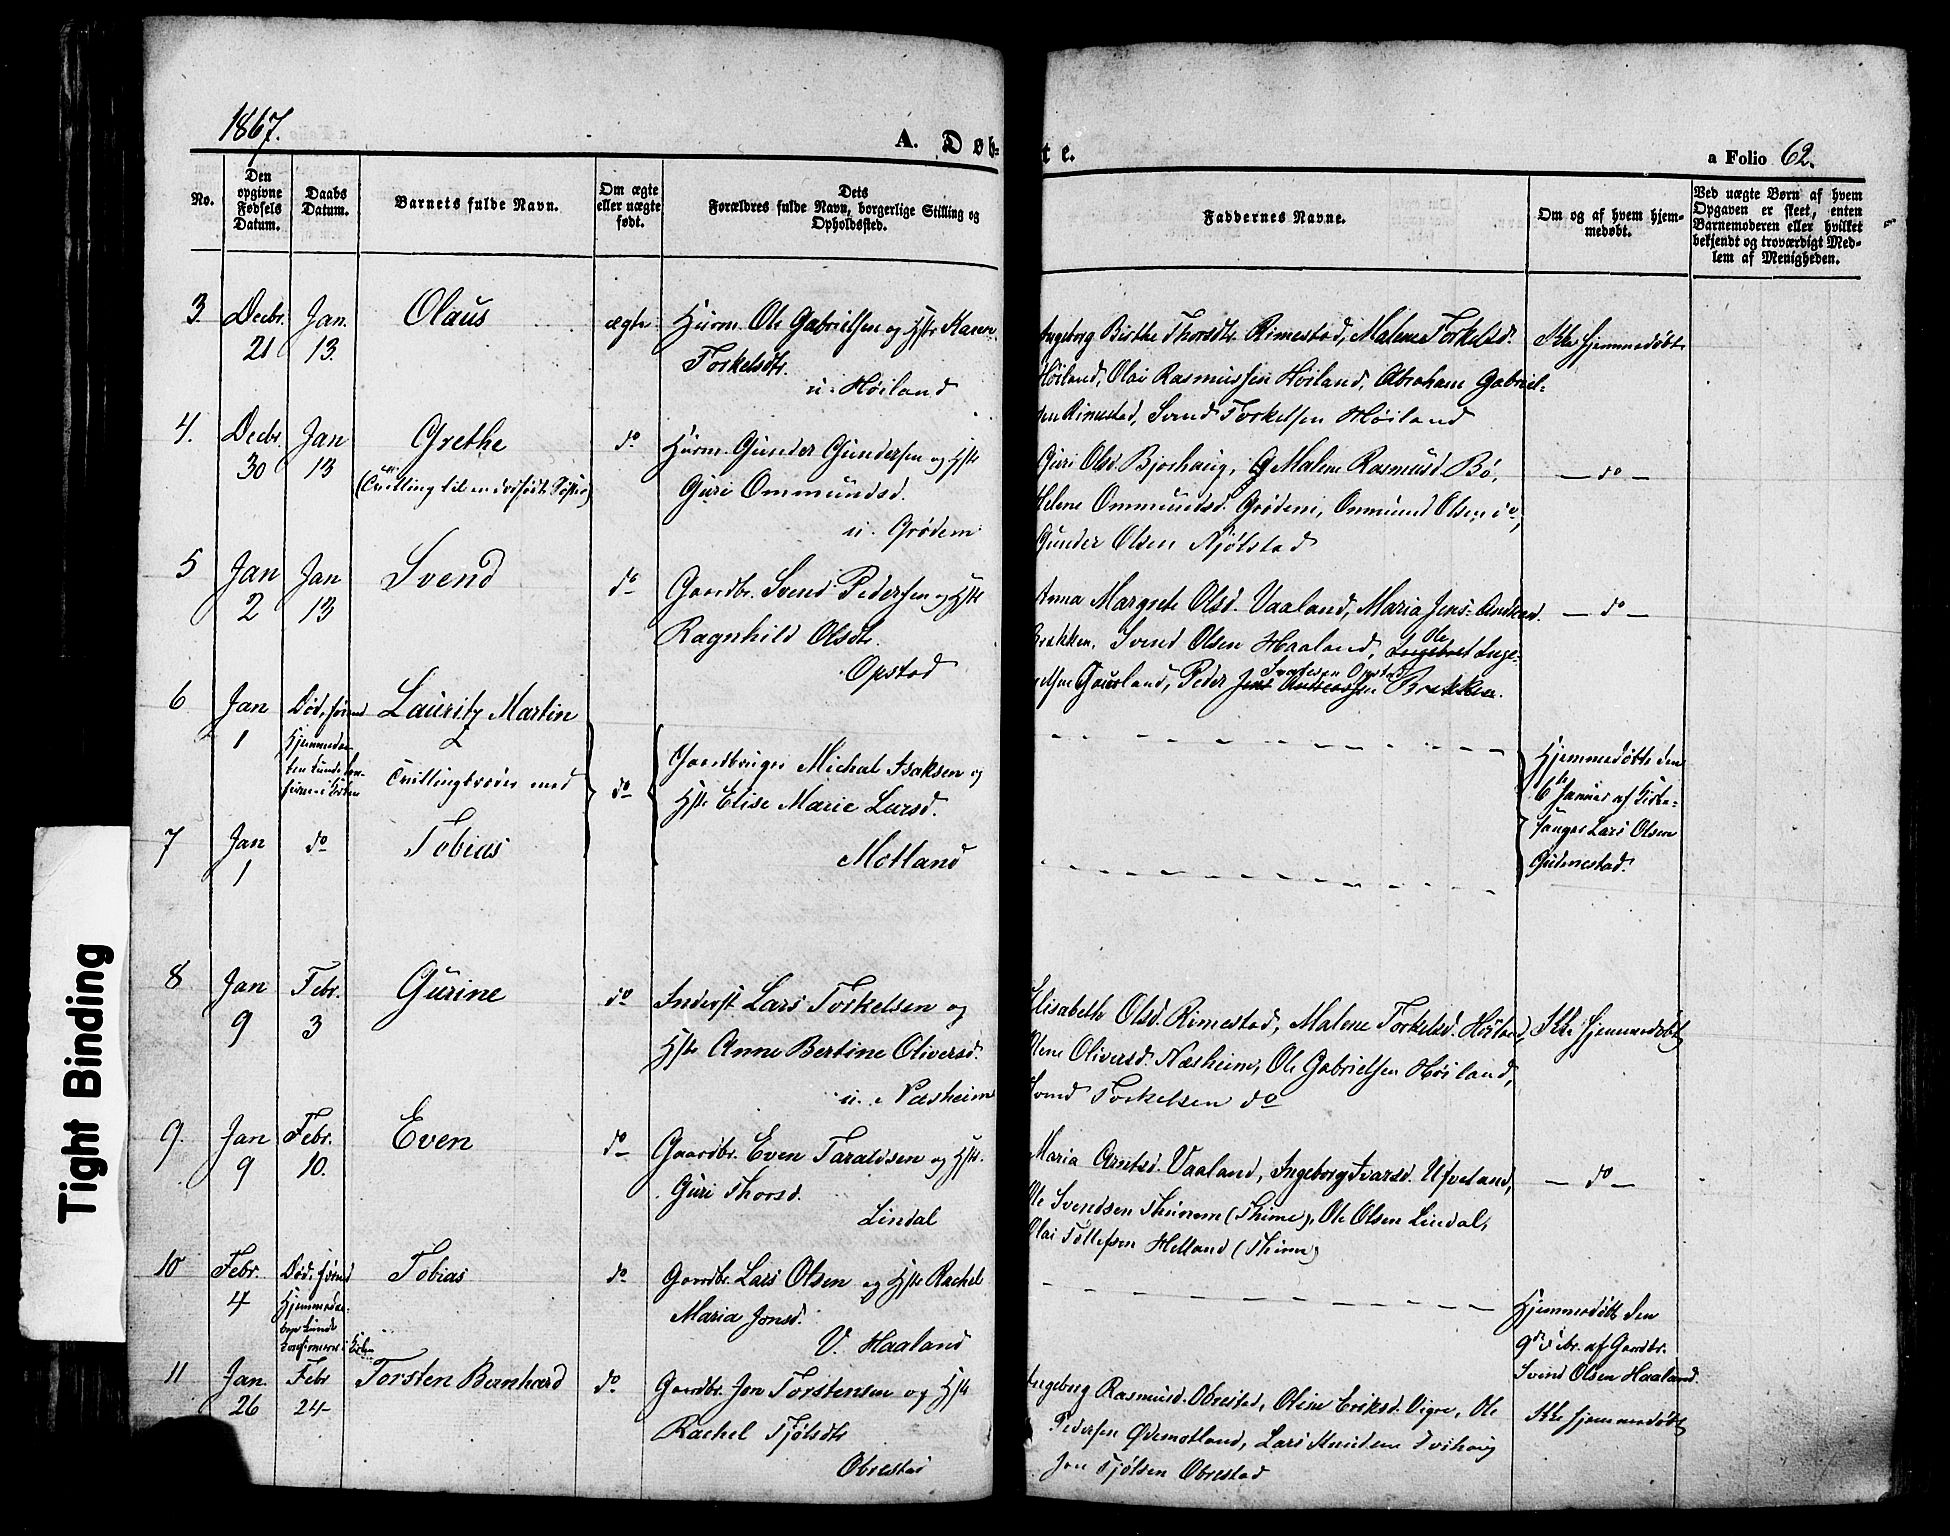 1867.
A. Døbte.
a Folio 62.
No.
Den opgivne Fødsels Datum.
Daabs Datum.
Barnets fulde Navn.
Om ægte eller uægte født.
Dets Forældres fulde Navn, borgerlige Stilling og Opholdssted.
Faddernes Navne.
Om og af hvem hjemmedøbt.
Ved uægte Børn af hvem Opgaven er skeet, enten Barnemoderen eller hvilket bekjendt og troværdigt Medlem af Menigheden.
3. Decbr. 21 Jan. 13 Olaus ægte
Huusm. Ole Gabrielsen og Hstr Karen
Torkelsdtr.
u. Høiland
Ingeborg Birthe Thorsdtr. Rimestad, Malene Torkelsd.
Høiland, Olai Rasmussen Høiland, Abraham Gabriel-
sen Rimestad, Svend Torkelsen Høiland
Ikke hjemmedøbt
4. Decbr. 30 Jan 13 Grethe
(Tvilling til en dødfødt Søster)
do
Huusm. Gunder Gundersen og Hstr
Guri Ommundsd.
u. Grødem
Guri Olsd. Bjorhaug, G Malene Rasmusd Bø,
Helene Ommundsd. Grødem, Ommund Olsen do,
Gunder Olsen Njølstad
— do —
5 Jan 2 Jan 13 Svend do
Gaardbr. Svend Pedersen og Hstr
Ragnhild Olsdtr.
Opstad
Anna Margrete Olsd. Vaaland, Maria Jens-Andread.
Brekken, Svend Olsen Haaland, Ole Inge-
Gausland, Peder Svendsen Opstad Brekken.
— do —
6 Jan 1 Død, førend
Hjemmedaa-
ben kunde kon-
firmeres i Kirken
Lauritz Martin
Tvillingbroder med
do
Gaardbruger Michal Isaksen og
Hstr Elise Marie Larsd.
Motland
Hjemmedøbte den
6te Januar af Kirke-
sanger Lars Olsen
Gudmestad.
7 Jan 1 do Tobias
8 Jan 9 Febr. 3 Gurine do
Inderst Lars Torkelsen og
Hstr Anne Bertine Oliversd.
u. Næsheim
Elisabeth Olsd. Rimestad, Malene Torkelsd. Høiland,
Olene Oliversd. Næsheim, Ole Gabrielsen Høiland,
Svend Torkelsen do
Ikke hjemmedøbt
9. Jan 9 Febr. 10. Even do
Gaardbr. Even Taraldsen og Hstr.
Guri Thorsd.
Lindal
Maria Arntsd. Vaaland, Ingeborg Ivarsd. Ufveland,
Ole Svendsen Thunem (Thime), Ole Olsen Lindal,
Olai Tollefsen Helland (Thime)
— do —
10 Febr. 4 Død, førend
Hjemmedaa-
ben kunde
konfirmeres i Kirken
Tobias do
Gaardbr. Lars Olsen og Hstr Rachel
Maria Jonsd.
V. Haaland
Hjemmedøbt den
9de Febr. af Gaardbr.
Svend Olsen Haaland.
11 Jan. 26 Febr 24 Torsten Bernhard do
Gaardbr. Jon Torstensen og Hstr
Rachel Tjølsdtr
Obrestad
Ingeborg Rasmusd. Obrestad, Oline Eriksd. Vigre, Ole
Pedersen Ødemotland, Lars Knudsen
Jon Tjølsen Obrestad
Ikke hjemmedøbt
Tight Binding